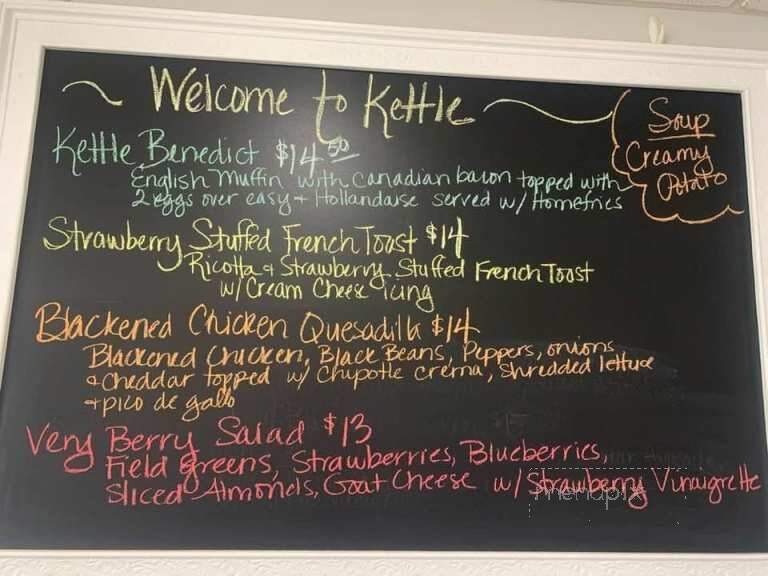 Welcome to Kettle
Soup
Creamy
Potato
Kettle Benedict $14.50
English Muffin with Canadian bacon topped with
2 eggs over easy + Hollandaise served w/ Homefries
Strawberry Stuffed French Toast $14
Ricotta & Strawberry Stuffed French Toast
w/ Cream Cheese icing
Blackened Chicken Quesadilla $14
Blackened Chicken, Black Beans, Peppers, onions
& cheddar topped w/ Chipotle crema, Shredded lettuce
+ pico de gallo
Very Berry Salad $13
Field greens, Strawberries, Blueberries,
Sliced Almonds, Goat Cheese w/ Strawberry Vinaigrette
menupix